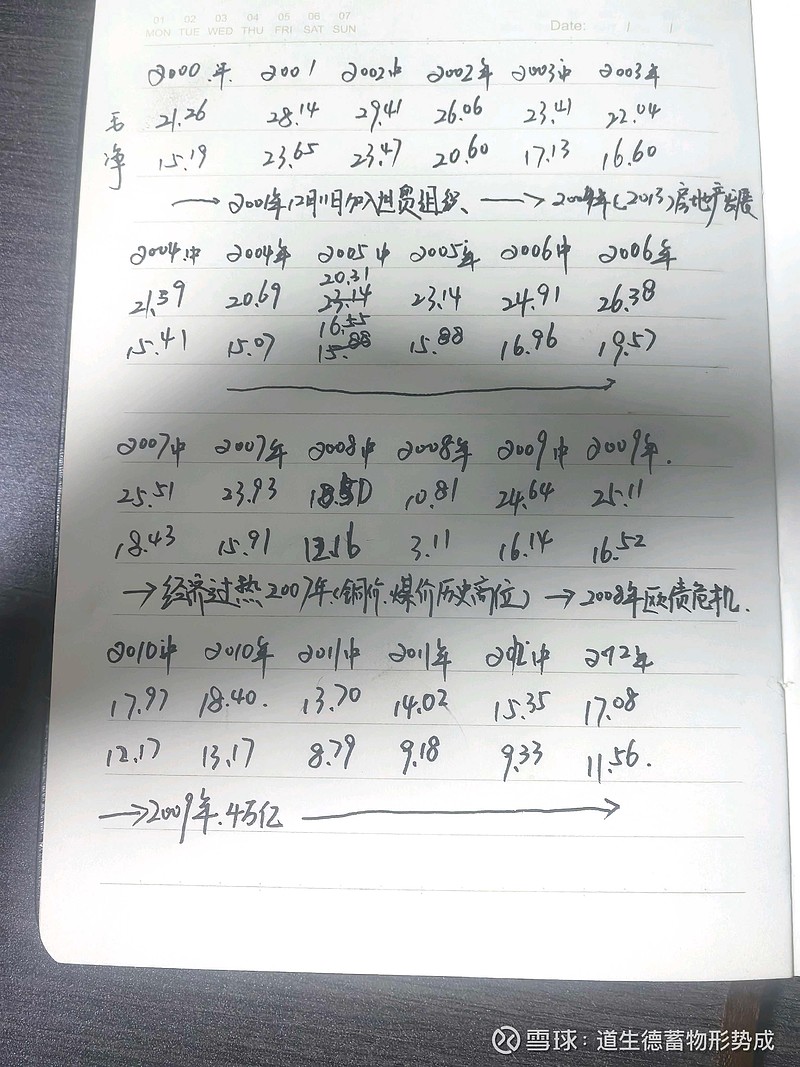 01 02 03 04 05 06 07
MON TUE WED THU FRI SAT SUN
Date: / /
2000年 2001 2002中 2002年 2003中 2003年
毛 21.26 28.14 29.41 26.06 23.41 22.04
净 15.19 23.65 23.47 20.60 17.13 16.60
→ 2001年12月11日加入世贸组织、 → 2004年(2013)房地产发展
2004中 2004年 2005中 2005年 2006中 2006年
20.31
21.39 20.69 23.14 23.14 24.91 26.38
16.55
15.41 15.07 15.88 15.88 16.96 19.57
2007中 2007年 2008中 2008年 2009中 2009年.
25.51 23.93 10.81 24.64 25.11
18.43 15.91 12.16 3.11 16.14 16.52
→ 经济过热2007年(铜价、煤价历史高位) → 2008年欧债危机.
2010中 2010年 2011中 2011年 2012中 2012年
17.97 18.40. 13.70 14.02 15.35 17.08
12.17 13.17 8.79 9.18 9.33 11.56.
→ 2009年.4万亿 →
雪球：道生德蓄物形势成